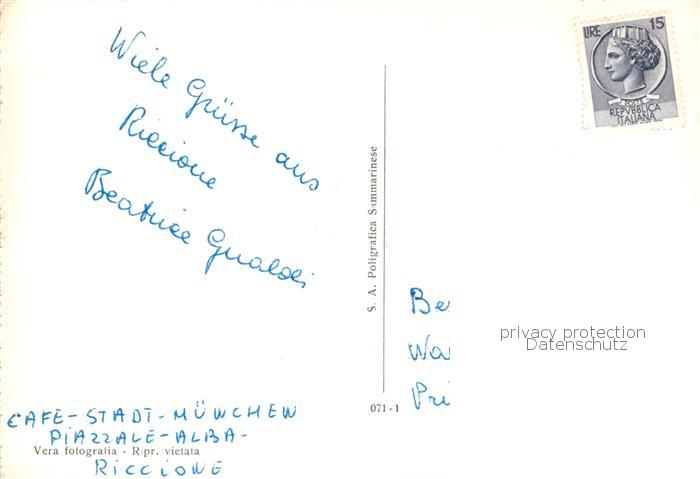 Wiele Grüsse aus
Riccione
Beatrice Gualdi
CAFE-STADT-MÜNCHEN
PIAZZALE-ALBA-
Vera fotografia - Ripr. vietata
RICCIONE
S. A. Poligrafica Sammarinese
071-1
LIRE 15
POSTE
REPVBBLICA
ITALIANA
privacy protection
Datenschutz